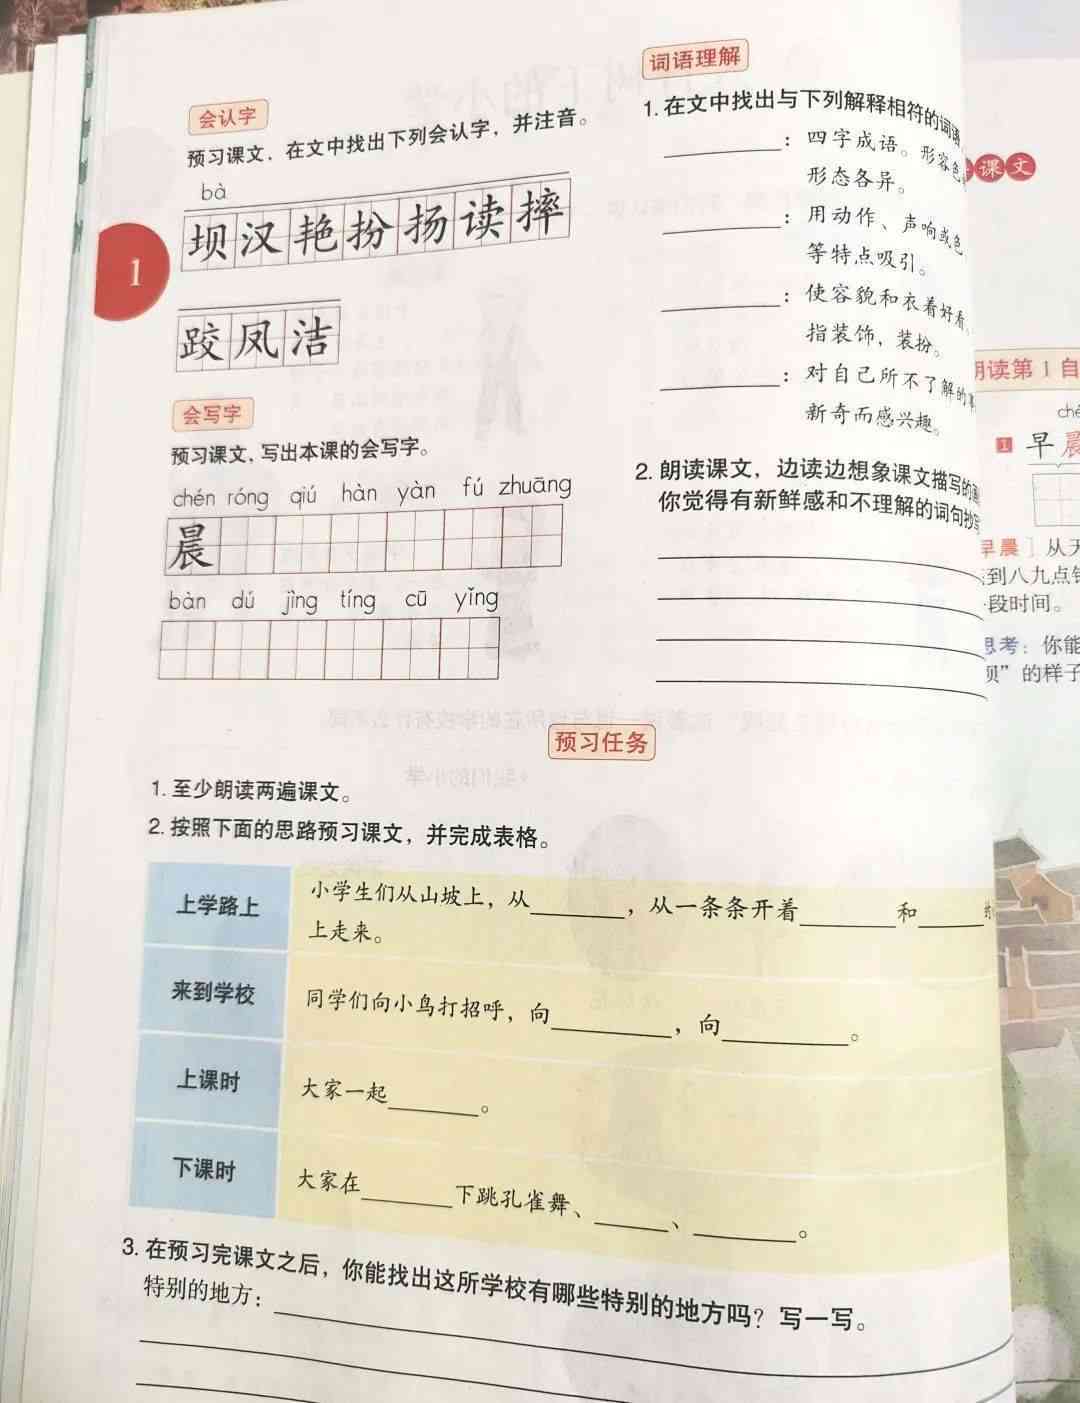 会认字
预习课文，在文中找出下列会认字，并注音。
bà
坝汉艳扮扬读摔
跤凤洁
1
会写字
预习课文，写出本课的会写字。
chén róng qiú hàn yàn fú zhuāng
晨
bàn dú jìng tíng cū yǐng
词语理解
1.在文中找出与下列解释相符的词语
：四字成语。形容色
形态各异。
：用动作、声响或色
等特点吸引。
：使容貌和衣着好看。
指装饰，装扮。
：对自己所不了解的事
新奇而感兴趣。
2.朗读课文，边读边想象课文描写的画
你觉得有新鲜感和不理解的词句抄写
预习任务
1.至少朗读两遍课文。
2.按照下面的思路预习课文，并完成表格。
上学路上
小学生们从山坡上，从，从一条条开着和的
上走来。
来到学校
同学们向小鸟打招呼，向，向。
上课时
大家一起。
下课时
大家在下跳孔雀舞、、。
3.在预习完课文之后，你能找出这所学校有哪些特别的地方吗？写一写。
特别的地方：
课文
朗读第1自
ché
1 早晨
早晨］从天
到八九点钟
段时间。
思考：你能
坝”的样子